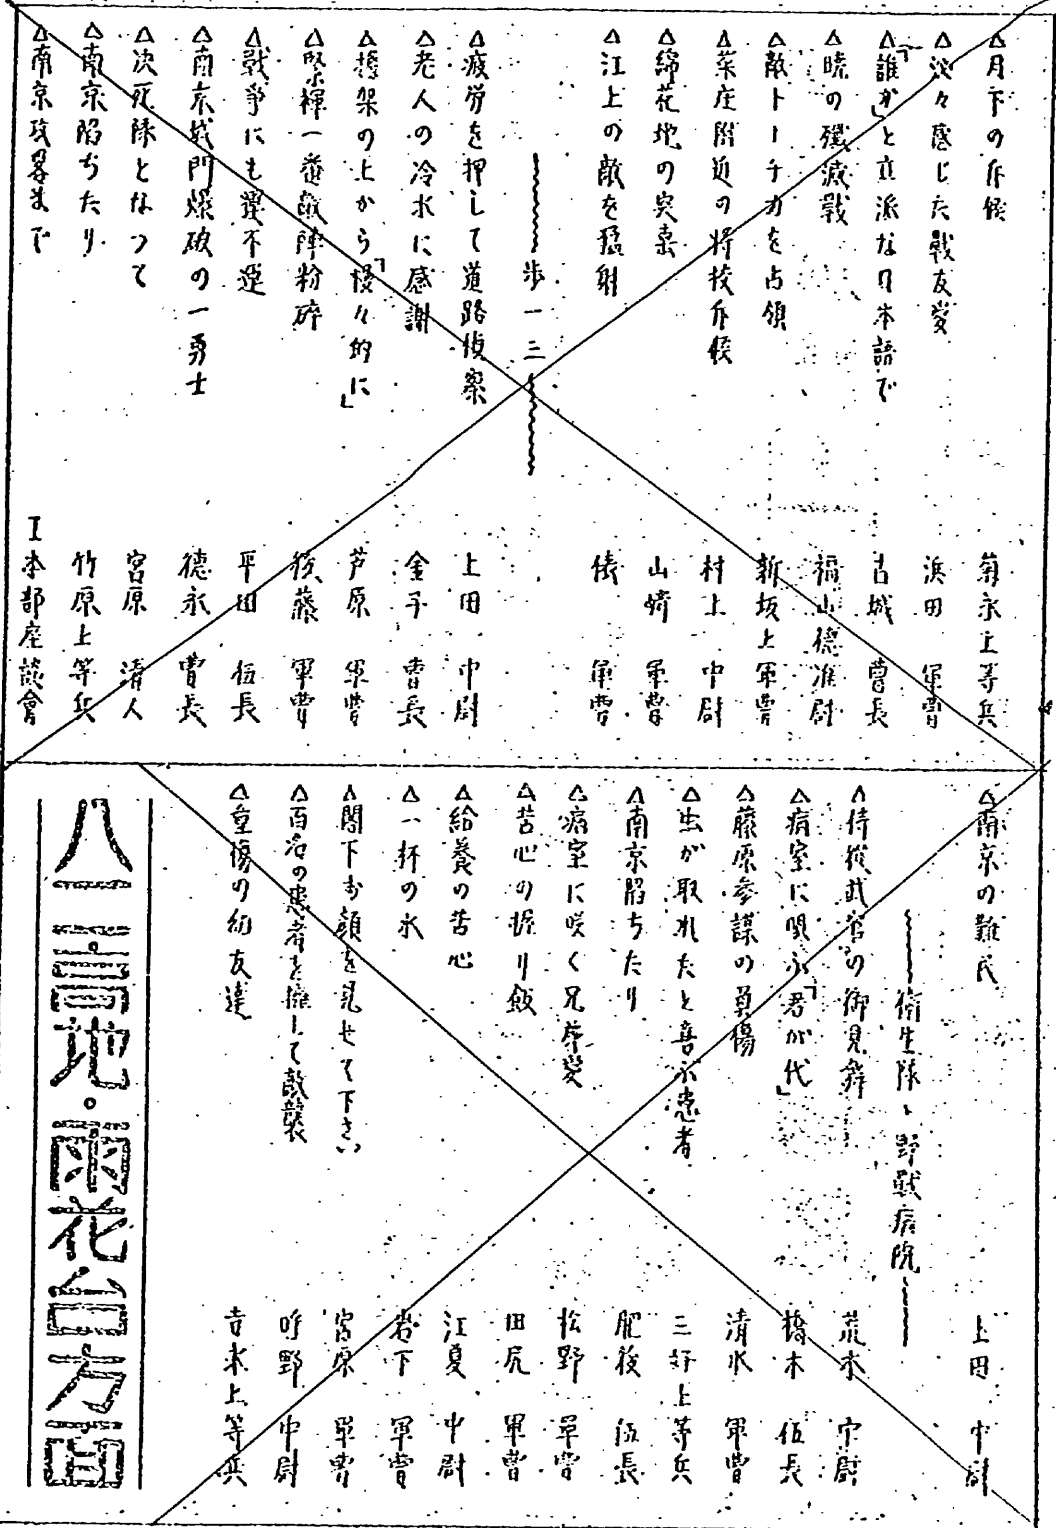 △月下の斥候　菊永上等兵
△淡々感じた戰友愛　浜田　軍曹
△「誰か」と立派な日本語で　古城　曹長
△曉の殲滅戰　福山德准尉
△敵トーチカを占領　新坂上軍曹
△菜庄附近の将校斥候　村上　中尉
△綿花地の突喜　山崎　軍曹
△江上の敵を猛射　俵　軍曹
歩一三
△疲労を押して道路偵察　上田　中尉
△老人の冷水に感謝　金子　曹長
△擔架の上から「慢々的に」　芦原　軍曹
△緊褌一番敵陣粉碎　後藤　軍曹
△戰爭にも運不運　平田　伍長
△南京城門爆破の一勇士　德永　曹長
△決死隊となつて　宮原　清人
△南京陷ちたり　竹原上等兵
△南京攻畧まで　I本部座談會
△南京の難民　上田　中尉
衛生隊、野戰病院
△侍從武官の御見舞　荒木　中尉
△病室に唄ふ「君が代」　橋本　伍長
△藤原参謀の負傷　清水　軍曹
△虫が取れたと喜ぶ患者　三好上等兵
△南京陷ちたり　肥後　伍長
△病室に咲く兄弟愛　松野　軍曹
△苦心の握り飯　田尻　軍曹
△給養の苦心　江夏　中尉
△一杯の水　岩下　軍曹
△閣下お顔を見せて下さい　宮原　軍曹
△百名の患者を擁して敵襲　吁野　中尉
△重傷の幼友達　吉永上等兵
八一高地・雨花台方面